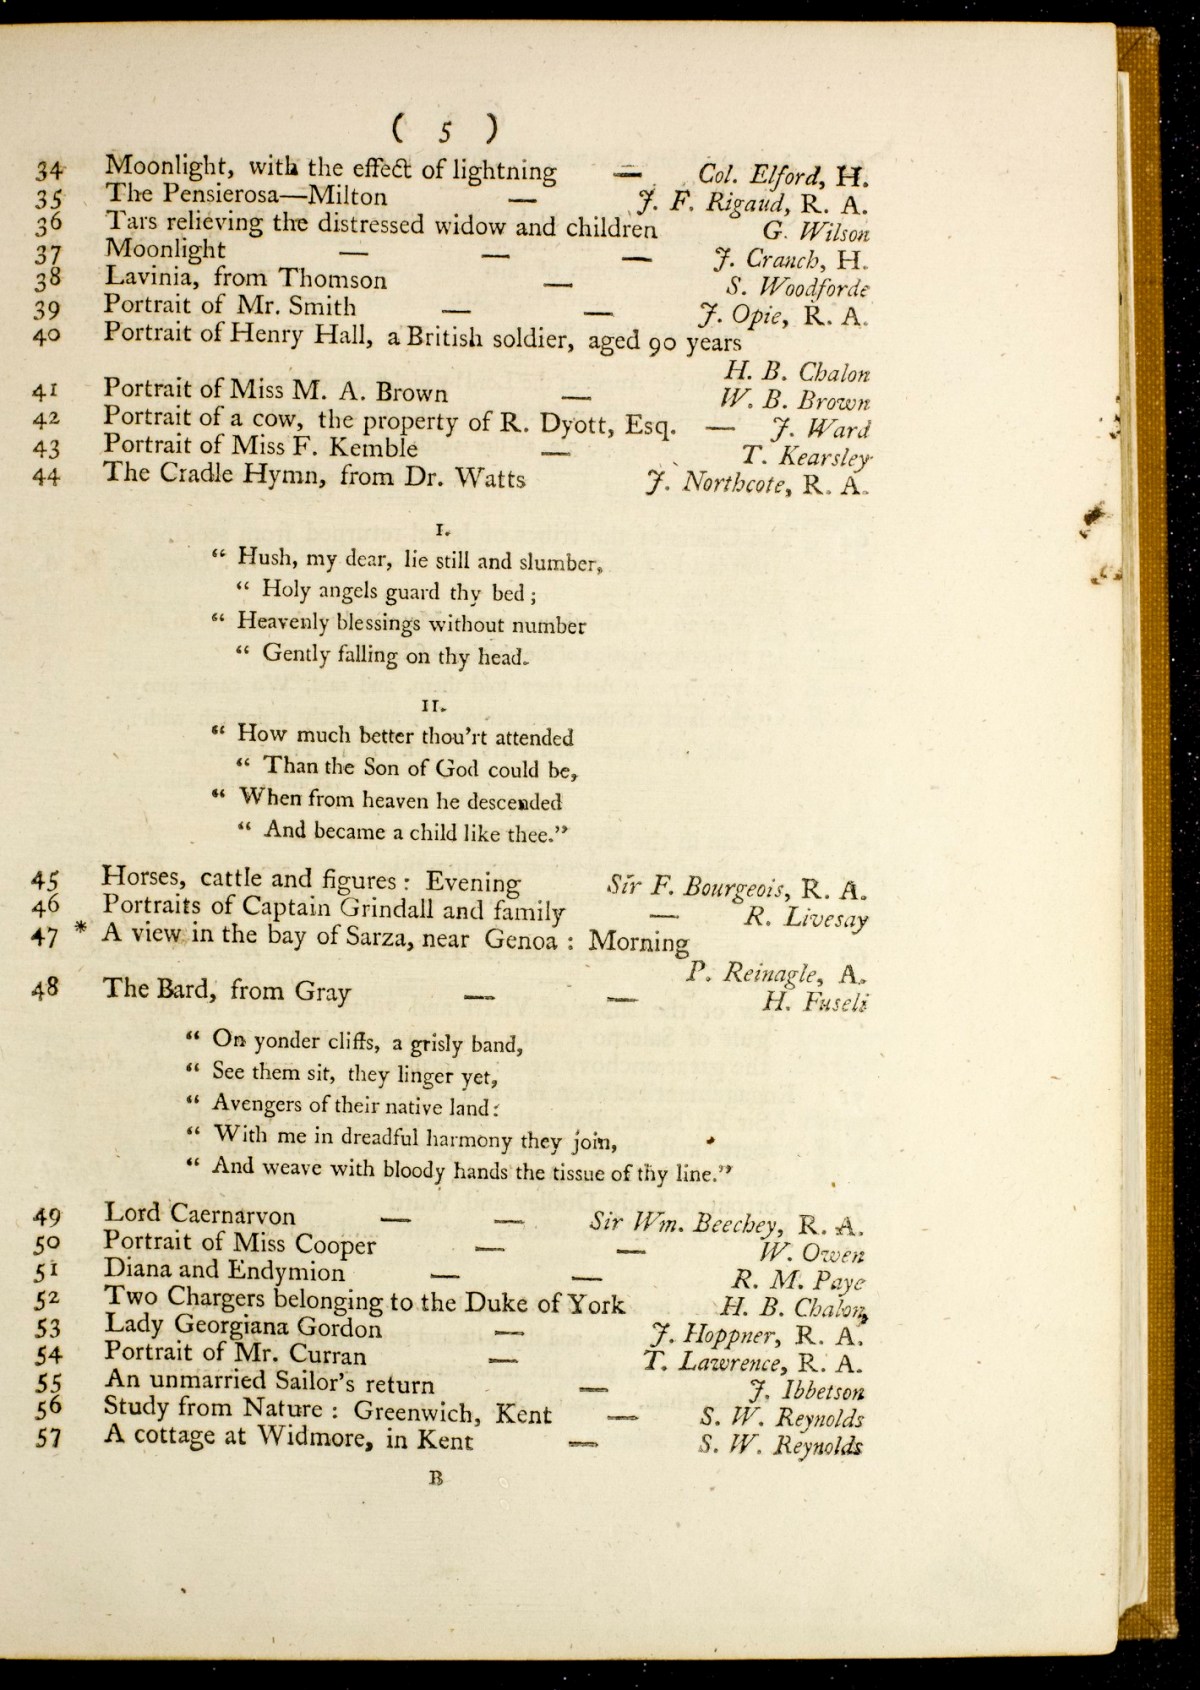 ( 5 )
34 Moonlight, with the effect of lightning — Col. Elford, H.
35 The Pensierosa—Milton — J. F. Rigaud, R. A.
36 Tars relieving the distressed widow and children G. Wilson
37 Moonlight — — — J. Cranch, H.
38 Lavinia, from Thomson — S. Woodforde
39 Portrait of Mr. Smith — — J. Opie, R. A.
40 Portrait of Henry Hall, a British soldier, aged 90 years
H. B. Chalon
41 Portrait of Miss M. A. Brown — W. B. Brown
42 Portrait of a cow, the property of R. Dyott, Esq. — J. Ward
43 Portrait of Miss F. Kemble — T. Kearsley
44 The Cradle Hymn, from Dr. Watts J. Northcote, R. A.
I.
“ Hush, my dear, lie still and slumber,
“ Holy angels guard thy bed ;
“ Heavenly blessings without number
“ Gently falling on thy head.
II.
“ How much better thou'rt attended
“ Than the Son of God could be,
“ When from heaven he descended
“ And became a child like thee.”
45 Horses, cattle and figures : Evening Sir F. Bourgeois, R. A.
46 Portraits of Captain Grindall and family — R. Livesay
47 * A view in the bay of Sarza, near Genoa : Morning
P. Reinagle, A.
48 The Bard, from Gray — — H. Fuseli
“ On yonder cliffs, a grisly band,
“ See them sit, they linger yet,
“ Avengers of their native land:
“ With me in dreadful harmony they join,
“ And weave with bloody hands the tissue of thy line.”
49 Lord Caernarvon — — Sir Wm. Beechey, R. A.
50 Portrait of Miss Cooper — — W. Owen
51 Diana and Endymion — — R. M. Paye
52 Two Chargers belonging to the Duke of York H. B. Chalon,
53 Lady Georgiana Gordon — J. Hoppner, R. A.
54 Portrait of Mr. Curran — T. Lawrence, R. A.
55 An unmarried Sailor's return — J. Ibbetson
56 Study from Nature : Greenwich, Kent — S. W. Reynolds
57 A cottage at Widmore, in Kent — S. W. Reynolds
B